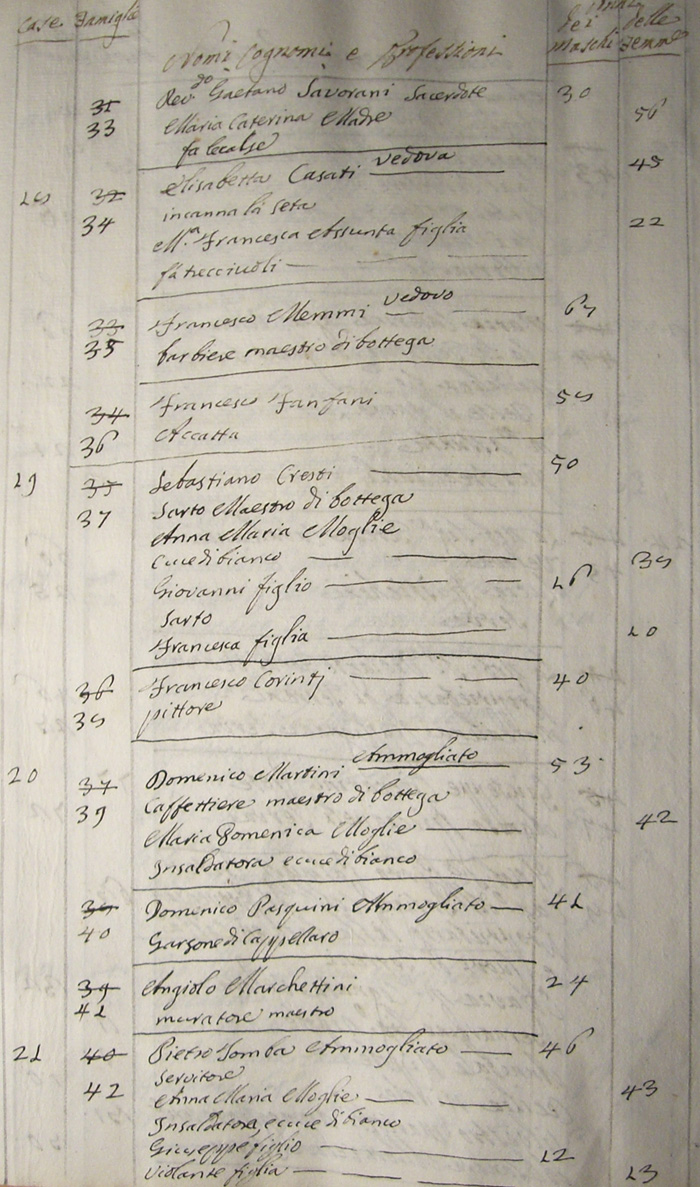 Case Famiglie Nomi Cognomi e Professioni Anni dei Maschi delle Femmine
31 Rev.do Gaetano Savorani Sacerdote 30
33 Maria Caterina Madre 56
fa le calse
18 32 Elisabetta Casati vedova 45
incanna la seta
34 M.a Francesca Assunta figlia 22
fa trecciuoli
33 Francesco Memmi vedovo 67
35 barbiere maestro di bottega
34 Francesco Fanfani 58
36 Accatta
19 35 Sebastiano Cresti 50
37 Sarto Maestro di bottega
Anna Maria Moglie
cuce di bianco 38
Giovanni figlio 16
Sarto
Francesca figlia 10
36 Francesco Corintj 40
38 pittore
20 37 Domenico Martini Ammogliato 53
39 Caffettiere maestro di bottega
Maria Domenica Moglie 42
Insaldatora e cuce di bianco
38 Domenico Pasquini Ammogliato 41
40 Garzone di Cappellaro
39 Angiolo Marchettini 24
41 muratore maestro
21 40 Pietro Tomba Ammogliato 46
Servitore
42 Anna Maria Moglie 43
Insaldatora, e cuce di bianco
Giuseppe figlio 12
Violante figlia 13